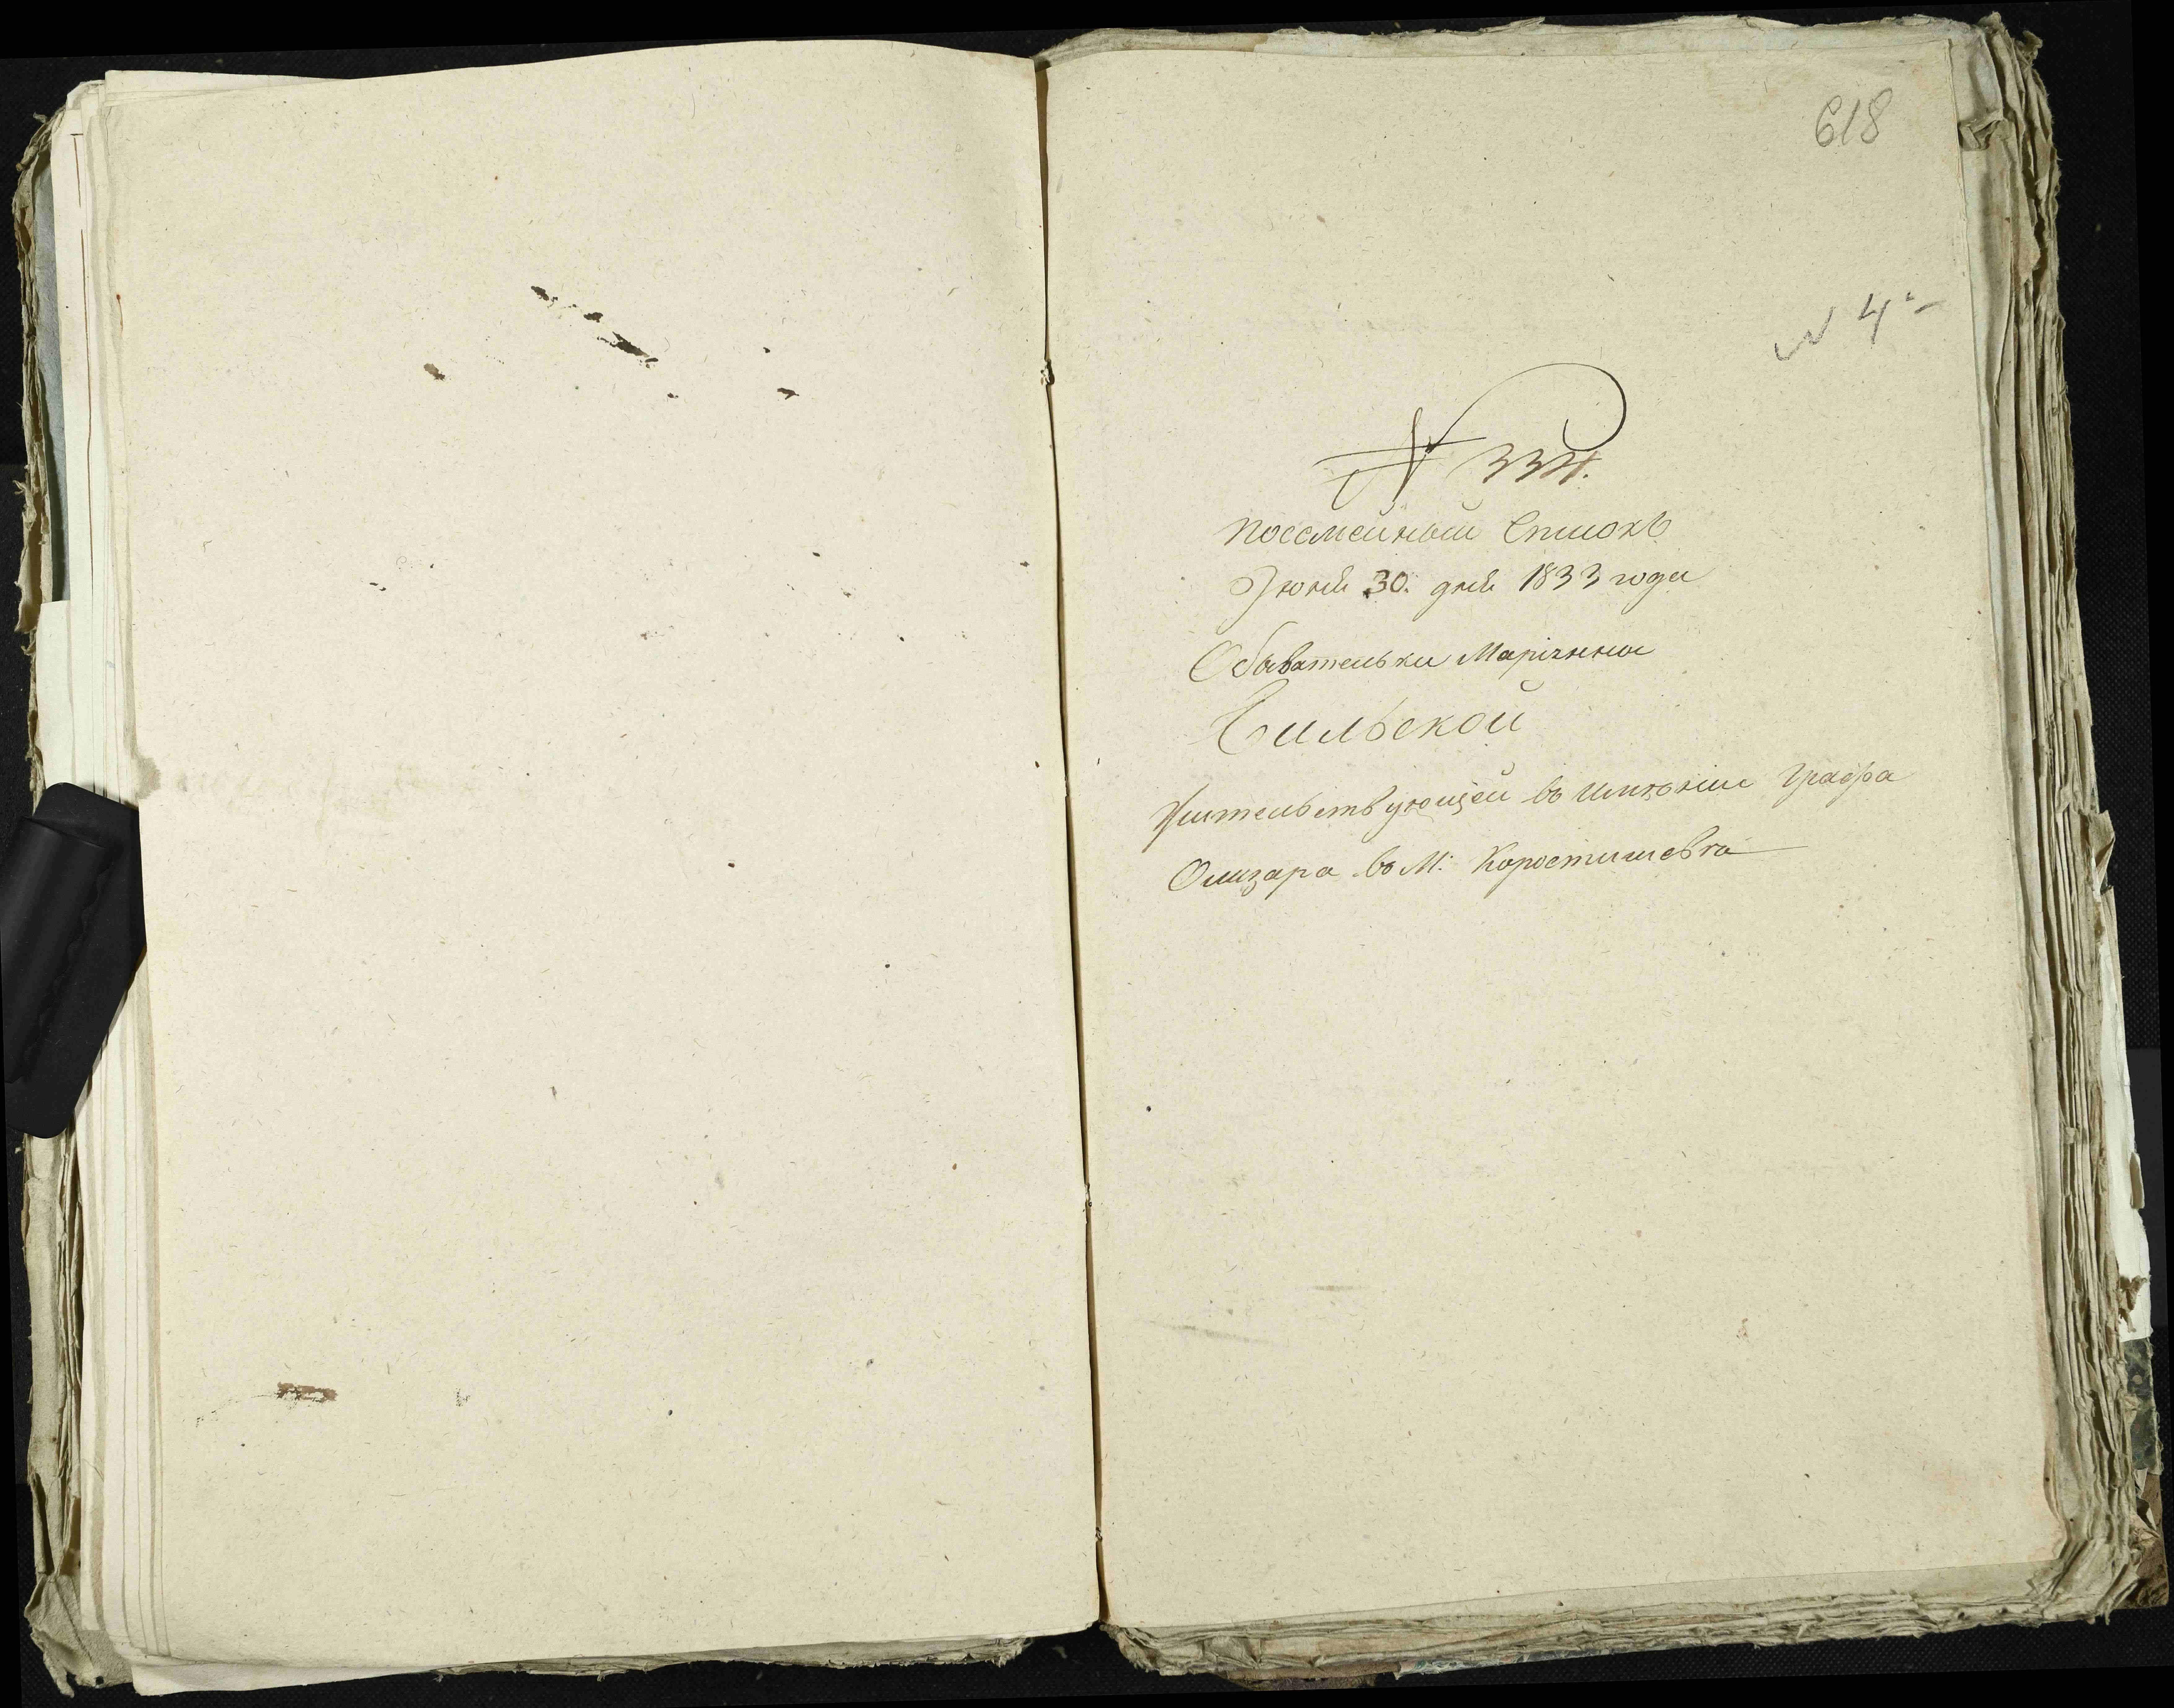 618
N 4
№ 334.
посемейный Списокъ
Июня 30. дня 1833 года
Обывательки Маріянны
Бильской
Жительствующей въ имѣніи Графа
Олизара въ М: Коростишевѣ